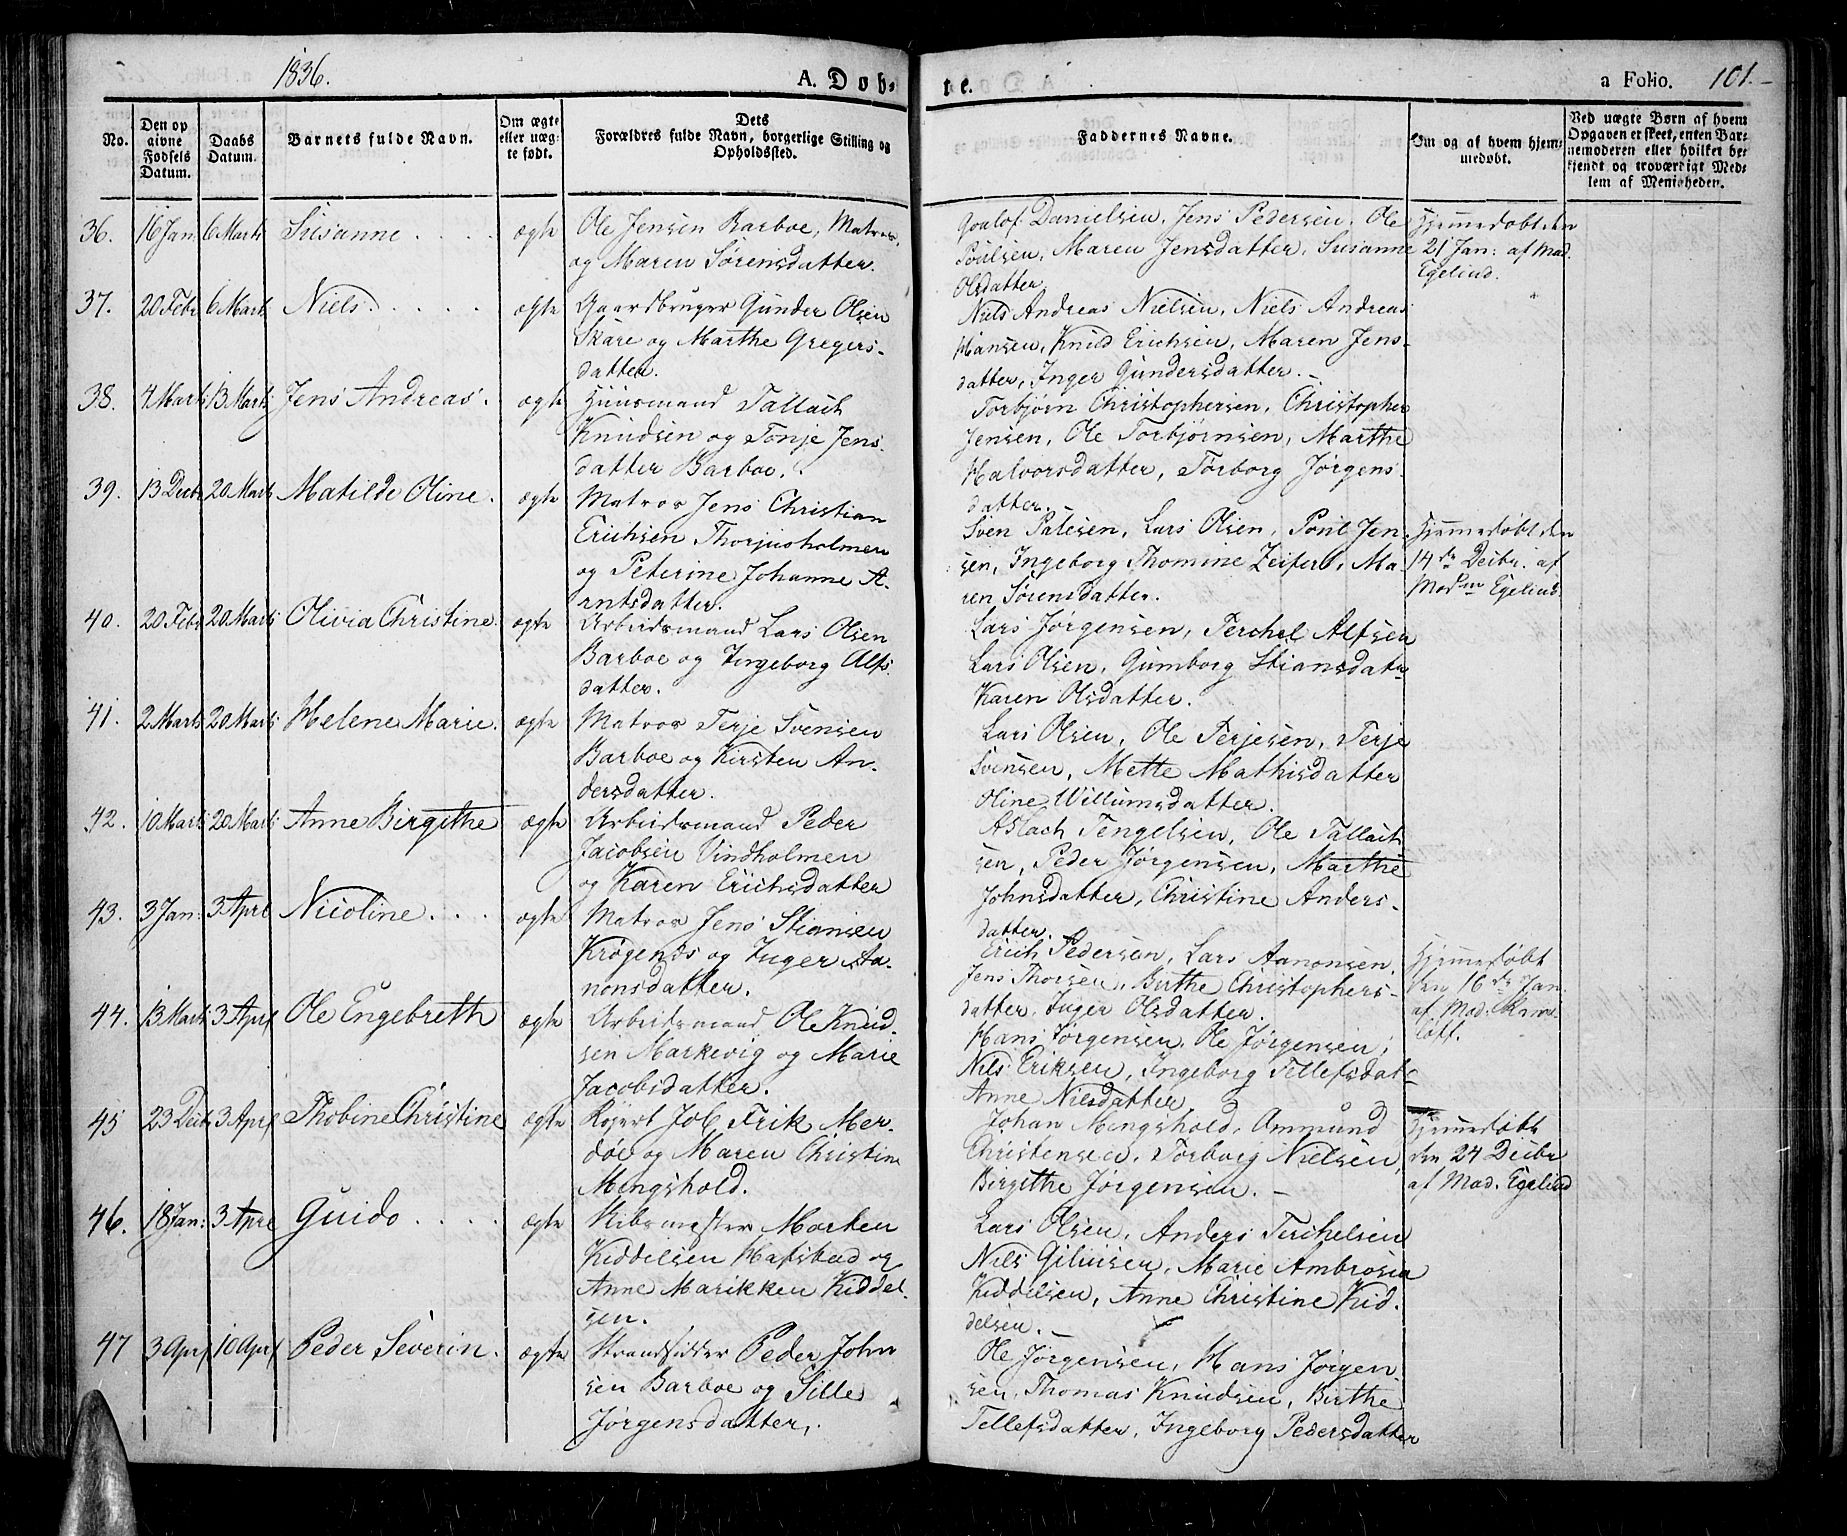 1836.
A. Døb-
te.
a Folio. 101.
No.
Den op
givne
Fødsels
Datum.
Daabs
Datum.
Barnets fulde Navn.
Om ægte
eller uæg-
te født.
Dets
Forældres fulde Navn, borgerlige Stilling og
Opholdssted.
Faddernes Navne.
Om og af hvem hjem-
medøbt.
Ved uægte Børn af hvem
Opgaven er skeet, enten Bar-
nemoderen eller hvilket be-
kjendt og troværdigt Med-
lem af Menigheden.
36. 16 Jan: 6 Marts Susanne ægte
Ole Jensen Barboe, Matros,
og Maren Sørensdatter.
Danielsen, Jens Pedersen, Ole
Poulsen, Maren Jensdatter, Susanne
Olsdatter
Hjemmedøbt den
21 Jan: af Mad.
Egelund.
37. 20 Febr 6 Marts Niels. ægte
Gaardbruger Gunder Olsen
Skare og Marthe Gregers-
datter.
Niels Andreas Nielsen, Niels Andreas
Hansen, Knud Erichsen, Maren Jens-
datter, Inger Gundersdatter. –
38. 4 Marts 13 Marts Jens Andreas. ægte
Huusmand Tallach
Knudsen og Tonje Jens-
datter Barboe.
Torbjørn Christophersen, Christopher
Jensen, Ole Torbjørnsen, Marthe
Halvorsdatter, Torborg Jørgens-
datter.
39. 13 Decbr 20 Marts Matilde Oline. ægte
Matros Jens Christian
Erichsen Thorjusholmen
og Peterine Johanne A-
rntsdatter.
Sven Lars Olsen, Poul Jen-
sen, Ingeborg Thomine Ma-
ren Sørensdatter.
Hjemmedøbt den
14de Decbr. af
Madm Egelund.
40. 20 Febr 20 Marts Olivia Christine. ægte
Arbeidsmand Lars Olsen
Barboe og Ingeborg Alfs-
datter.
Lars Jørgensen, Terchel Alfsen
Lars Olsen, Gumborg Stiansdatr
Karen Olsdatter.
41. 2 Marts 20 Marts Helene Marie. ægte
Matros Terje Svensen
Barboe og Kirsten An-
dersdatter.
Lars Olsen, Ole Terjesen, Terje
Svensen, Mette Mathisdatter
Oline Willumsdatter.
42. 10 Marts 20 Marts Anne Birgithe ægte
Arbeidsmand Peder
Jacobsen Vindholmen
og Karen Erichsdatter
Aslach Tengelsen, Ole Tallach-
sen, Peder Jørgensen, Marthe
Johnsdatter, Christine Anders-
datter.
43. 3 Jan: 3 Apr Nicoline. ægte
Matros Jens Stiansen
Krøgenes og Inger Aa-
nonsdatter.
Erich Pedersen, Lars Aanonsen,
Jens Thorsen, Birthe Christophers-
datter, Inger Olsdatter.
Hjemmedøbt
den 16de Jan:
af Mad.
44. 13 Marts 3 Apr Ole Engebreth ægte
Arbeidsmand Ole Knud-
sen Markevig og Marie
Jacobsdatter.
Hans Jørgensen, Ole Jørgensen,
Niels Eriksen, Ingeborg Tellefsdatr
Anne Nielsdatter
45 23 Decbr 3 Apr Thobine Christine ægte
Job Frik Mer-
døe og Maren Christine
Mengshold.
Johan Mengshold, Ammund
Christensen, Torborg Nielsen,
Birgithe Jørgensen. –
Hjemmedøbt
den 24 Decbr
af Mad. Egelund
46. 18 Jan: 3 Apr Guido ægte
Skibsmester Morten
Kiddelsen Hafstad og
Anne Marikken Kiddel-
sen.
Lars Olsen, Anders Terchelsen
Niels Marie Ambrosia
Kiddelsen, Anne Christine Kid-
delsen. –
47 3 Apr 10 Apr Peder Severin. ægte
Strandsidder Peder John-
sen Barboe og Sille
Jørgensdatter.
Ole Jørgensen, Hans Jørgen-
sen, Thomas Knudsen, Birthe
Tellefsdatter, Ingeborg Pedersdatter